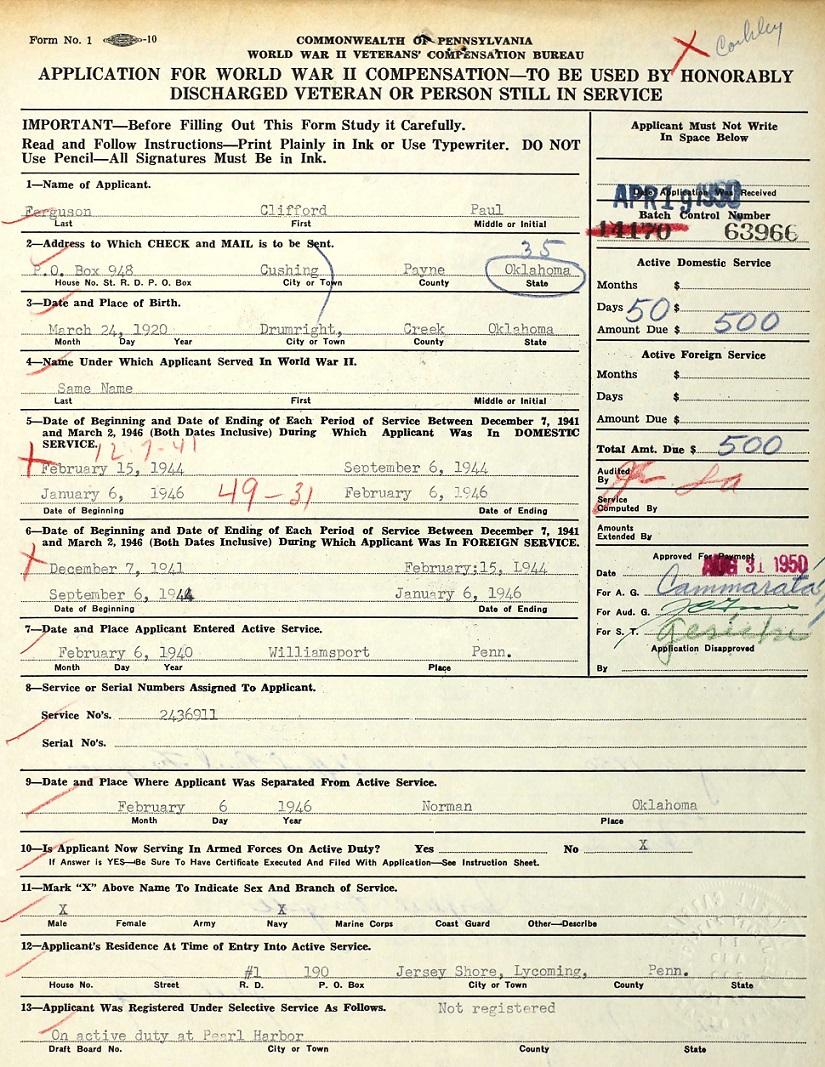 Form No. 1 -10
COMMONWEALTH OF PENNSYLVANIA
WORLD WAR II VETERANS' COMPENSATION BUREAU
APPLICATION FOR WORLD WAR II COMPENSATION—TO BE USED BY HONORABLY
DISCHARGED VETERAN OR PERSON STILL IN SERVICE
IMPORTANT—Before Filling Out This Form Study it Carefully.
Read and Follow Instructions—Print Plainly in Ink or Use Typewriter. DO NOT
Use Pencil—All Signatures Must Be in Ink.
Applicant Must Not Write
In Space Below
Date Application Was Received
APR 19 1950
Batch Control Number
14170 63966
1—Name of Applicant.
Ferguson Clifford Paul
Last First Middle or Initial
2—Address to Which CHECK and MAIL is to be Sent.
35
P.O. Box 948 Cushing Payne Oklahoma
House No. St. R. D. P. O. Box City or Town County State
3—Date and Place of Birth.
March 24, 1920 Drumright, Creek Oklahoma
Month Day Year City or Town County State
4—Name Under Which Applicant Served In World War II.
Same Name
Last First Middle or Initial
5—Date of Beginning and Date of Ending of Each Period of Service Between December 7, 1941
and March 2, 1946 (Both Dates Inclusive) During Which Applicant Was In DOMESTIC
SERVICE.
12-7-41
February 15, 1944 September 6, 1944
January 6, 1946 49-31 February 6, 1946
Date of Beginning Date of Ending
6—Date of Beginning and Date of Ending of Each Period of Service Between December 7, 1941
and March 2, 1946 (Both Dates Inclusive) During Which Applicant Was In FOREIGN SERVICE.
December 7, 1941 February:15, L944
September 6, 1944 January 6, 1946
Date of Beginning Date of Ending
7—Date and Place Applicant Entered Active Service.
February 6, 1940 Williamsport Penn.
Month Day Year Place
Active Domestic Service
Months $
Days 50 $
Amount Due $ 500
Active Foreign Service
Months $
Days $
Amount Due $
Total Amt. Due $ 500
Audited
By
Service
Computed By
Amounts
Extended By
Approved For Payment
Date AUG 31 1950
For A. G. Cammarata
For Aud. G.
For S. T.
Application Disapproved
By
8—Service or Serial Numbers Assigned To Applicant.
Service No's. 2436911
Serial No's.
9—Date and Place Where Applicant Was Separated From Active Service.
February 6 1946 Norman Oklahoma
Month Day Year Place
10—Is Applicant Now Serving In Armed Forces On Active Duty? Yes No X
If Answer is YES—Be Sure To Have Certificate Executed And Filed With Application—See Instruction Sheet.
11—Mark "X" Above Name To Indicate Sex And Branch of Service.
X X
Male Female Army Navy Marine Corps Coast Guard Other—Describe
12—Applicant's Residence At Time of Entry Into Active Service.
#1 190 Jersey Shore, Lycoming, Penn.
House No. Street R. D. P. O. Box City or Town County State
13—Applicant Was Registered Under Selective Service As Follows. Not registered
On active duty at Pearl Harbor
Draft Board No. City or Town County State